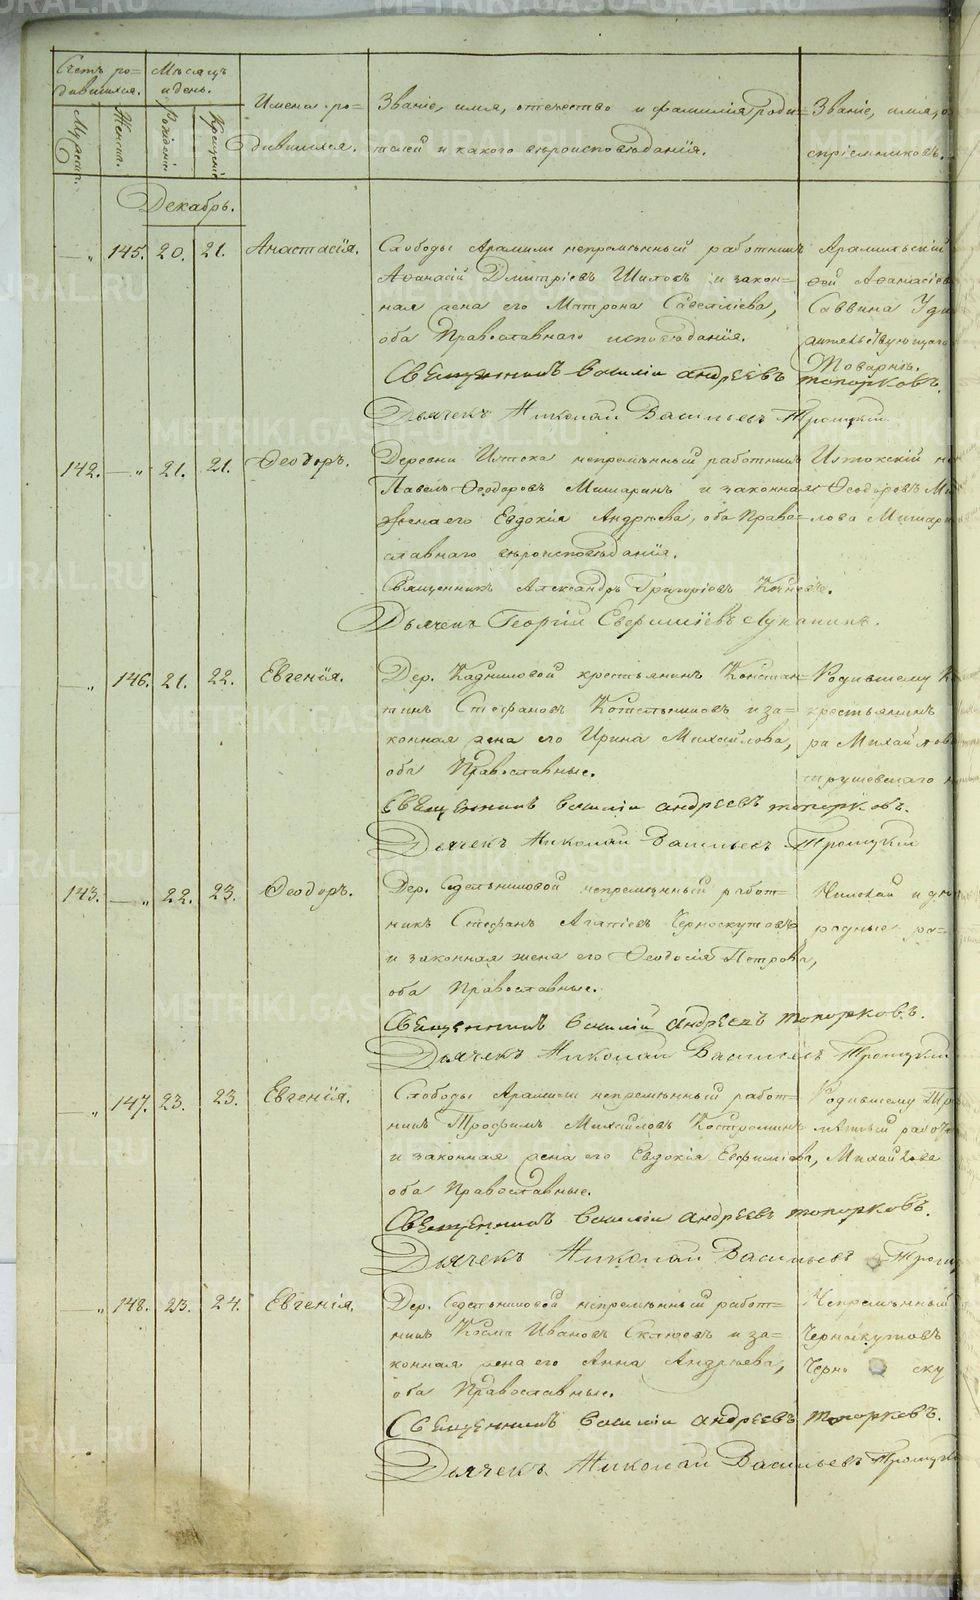 Счетъ ро-
дившихся.
Мѣсяцъ
и день.
Имена ро-
дившихся.
Званіе, имя, отечество и фамилія роди-
телей и какого вѣроисповѣданія.
Званіе, имя, о
спріемниковъ.
Мужеск.
Женск.
Рожденія
Крещенія
Декабрь.
„ 145. 20. 21. Анастасія.
Слободы Арамили непремѣнный работникъ
Аѳанасій Дмитріевъ Шиловъ и закон-
ная жена его Матрона Савеліева,
оба Православнаго исповѣданія.
Священникъ Василіи андреевъ топорковъ.
Дьячекъ Николай Васильевъ Троицкій
Арамильскій
ѳей Аѳанасіев
Саввина
жительствующаго
Товаринъ.
142. „ 21. 21. Ѳеодоръ.
Деревни Истока непремѣнный работникъ
Павелъ Ѳеодоровъ Мишаринъ и законная
жена его Евдокія Андреева, оба Право-
славнаго вѣроисповѣданія.
Священникъ Александръ Григоріевъ
Дьячекъ Георгій Евфиміевъ Луканинъ.
Истокскій не
Ѳеодоровъ Ми
лова Мишар
„ 146. 21. 22. Евгенія.
Дер. Кадниковой крестьянинъ Констан-
тинъ Стефановъ Котельниковъ и за-
конная жена его Ирина Михайлова,
оба Православные.
Священникъ Василіи андреевъ топорковъ.
Дьячекъ Николай Васильевъ Троицкій
Родившему К
крестьянинъ
ра Михайлов
143. „ 22. 23. Ѳеодоръ.
Дер. Седельниковой непремѣнный работ-
никъ Стефанъ Агапіевъ Черноскутовъ
и законная жена его Ѳеодосія Петрова,
оба Православные.
Священникъ Василіи андреевъ топорковъ.
Дьячекъ Николай Васильевъ Троицкій
родные
„ 147. 23. 23. Евгенія.
Слободы Арамили непремѣнный работ-
никъ Трофимъ Михайловъ Костроминъ
и законная жена его Евдокія Евфиміева,
оба Православные.
Священникъ Василіи андреевъ топорковъ.
Дьячекъ Николай Васильевъ Троиц
Родившему Тр
мѣнный работ
Михайлова
„ 148. 23. 24. Евгенія.
Дер. Седельниковой непремѣнный работ-
никъ Косма Ивановъ и за-
конная жена его Анна Андреева,
оба Православные.
Священникъ Василіи андреевъ топорковъ.
Дьячекъ Николай Васильевъ Троицкі
Непремѣнный
Черноскутовъ
Черно ску
METRIKI.GASO-URAL.RU